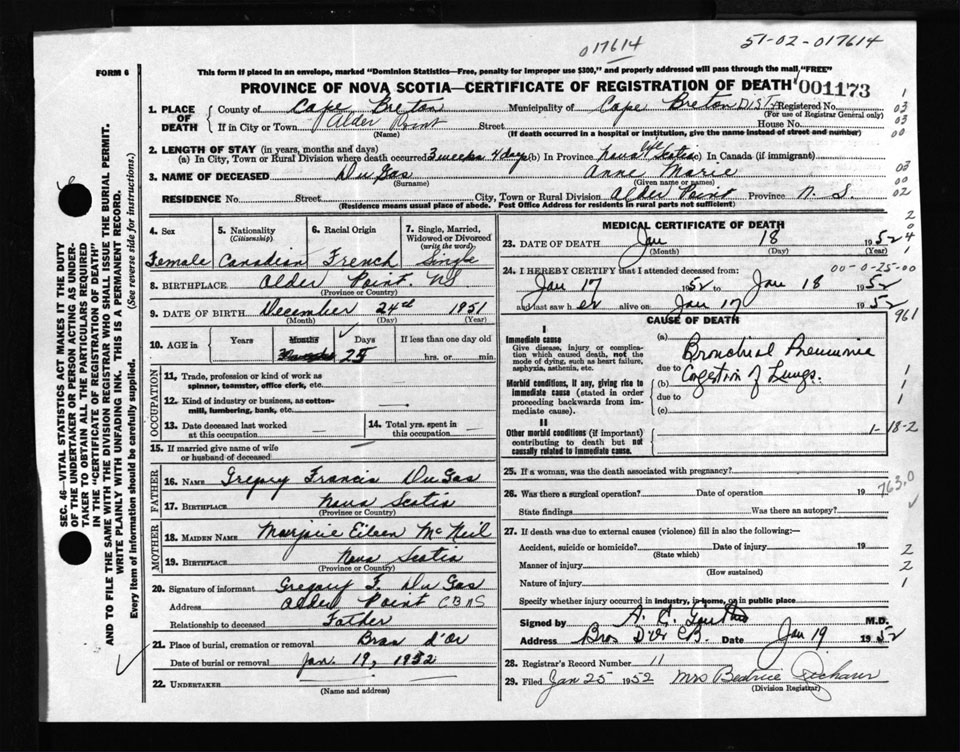 017614
51-02-017614
FORM 6
This form if placed in an envelope, marked "Dominion Statistics—Free, penalty for improper use $300," and properly addressed will pass through the mail "FREE"
PROVINCE OF NOVA SCOTIA—CERTIFICATE OF REGISTRATION OF DEATH
001173
1. PLACE OF DEATH
County of Cape Breton Municipality of Cape Breton DIST. Registered No.
(For use of Registrar General only)
If in City or Town Alder Point Street House No.
(Name) (If death occurred in a hospital or institution, give the name instead of street and number)
2. LENGTH OF STAY (in years, months and days)
(a) In City, Town or Rural Division where death occurred 3 weeks 4 days (b) In Province Nova Scotia (c) In Canada (if immigrant)
3. NAME OF DECEASED DuGas Anne Marie
(Surname) (Given name or names)
RESIDENCE No. Street City, Town or Rural Division Alder Point Province N. S.
(Residence means usual place of abode. Post Office Address for residents in rural parts not sufficient)
4. Sex
Female
5. Nationality (Citizenship)
Canadian
6. Racial Origin
French
7. Single, Married, Widowed or Divorced (write the word)
Single
8. BIRTHPLACE Alder Point. NS
(Province or Country)
9. DATE OF BIRTH December 24 1951
(Month) (Day) (Year)
10. AGE in Years Months Days If less than one day old
25 hrs. or min.
OCCUPATION
11. Trade, profession or kind of work as spinner, teamster, office clerk, etc.
12. Kind of industry or business, as cotton-mill, lumbering, bank, etc.
13. Date deceased last worked at this occupation
14. Total yrs. spent in this occupation
15. If married give name of wife or husband of deceased
FATHER
16. NAME Gregory Francis DuGas
17. BIRTHPLACE Nova Scotia
(Province or Country)
MOTHER
18. MAIDEN NAME Marjorie Eileen McNeil
19. BIRTHPLACE Nova Scotia
(Province or Country)
20. Signature of informant Gregory F. DuGas
Address Alder Point C B NS
Relationship to deceased Father
21. Place of burial, cremation or removal Bras d'Or
Date of burial or removal Jan. 19, 1952
22. UNDERTAKER
(Name and address)
MEDICAL CERTIFICATE OF DEATH
23. DATE OF DEATH Jan 18 1952
(Month) (Day) (Year)
24. I HEREBY CERTIFY that I attended deceased from:
00-0-25-00
Jan 17 1952 to Jan 18 1952
and last saw her alive on Jan 17 1952
961
CAUSE OF DEATH
I
Immediate cause
Give disease, injury or complication which caused death, not the mode of dying, such as heart failure, asphyxia, asthenia, etc.
Morbid conditions, if any, giving rise to immediate cause (stated in order proceeding backwards from immediate cause).
II
Other morbid conditions (if important) contributing to death but not causally related to immediate cause.
(a) Bronchial Pneumonia
due to
(b) Congestion of Lungs.
due to
(c)
1-18-2
25. If a woman, was the death associated with pregnancy?
26. Was there a surgical operation? Date of operation 19
763.0
State findings Was there an autopsy?
27. If death was due to external causes (violence) fill in also the following:—
Accident, suicide or homicide? Date of injury 19
(State which)
Manner of injury
(How sustained)
Nature of injury
Specify whether injury occurred in industry, in home, or in public place
Signed by M.D.
Address Bras D'Or CB. Date Jan 19 1952
28. Registrar's Record Number 11
29. Filed Jan 25 1952 Mrs Beatrice
(Division Registrar)
SEC. 46—VITAL STATISTICS ACT MAKES IT THE DUTY
OF THE UNDERTAKER OR PERSON ACTING AS UNDER-
TAKER TO OBTAIN ALL THE PARTICULARS REQUIRED
IN THE "CERTIFICATE OF REGISTRATION OF DEATH"
AND TO FILE THE SAME WITH THE DIVISION REGISTRAR WHO SHALL ISSUE THE BURIAL PERMIT.
WRITE PLAINLY WITH UNFADING INK. THIS IS A PERMANENT RECORD.
Every item of information should be carefully supplied. (See reverse side for instructions.)